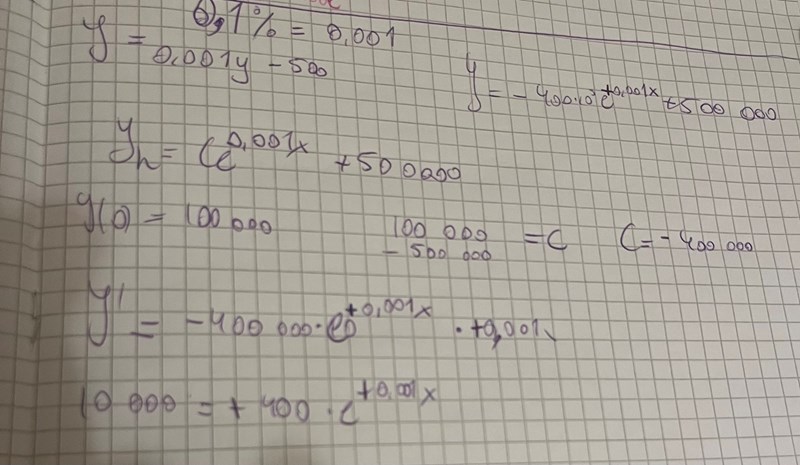 0,1% = 0,001
y = 0,001y - 500
y = - 400·10³e^+0,001x +500 000
y_h = Ce^0,001x +500000
y(0) = 100 000
100 000 - 500 000 = C
C = - 400 000
y' = - 400 000·e^+0,001x · +0,001
10 000 = + 400 · e^+0.001x